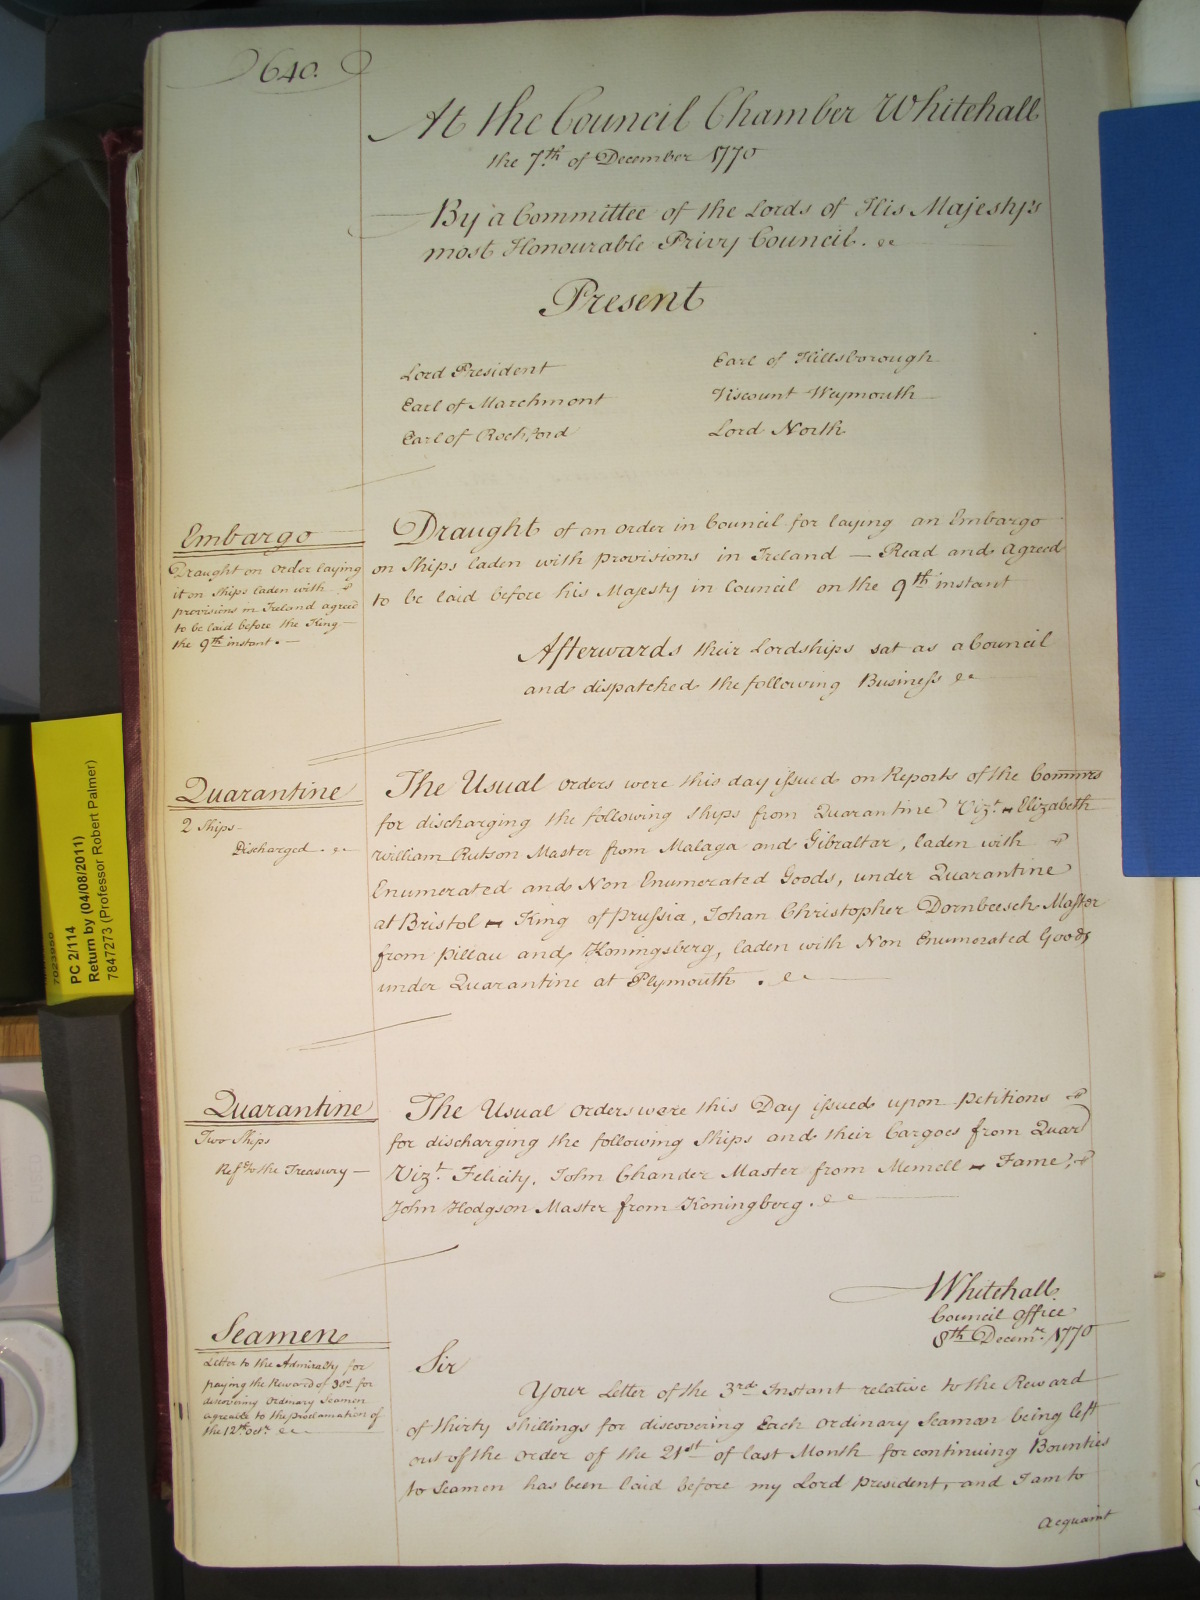 640.
At the Council Chamber Whitehall
the 7th of December 1770
By a Committee of the Lords of His Majesty's
most Honourable Privy Council.
Present
Lord President
Earl of Marchmont
Earl of Rochford
Earl of Hillsborough
Viscount Weymouth
Lord North
Embargo
Draught on Order laying
it on Ships laden with
provisions in Ireland agreed
to be laid before the King
the 9th instant.
Draught of an Order in Council for laying an Embargo
on Ships laden with provisions in Ireland — Read and agreed
to be laid before his Majesty in Council on the 9th instant
Afterwards their Lordships sat as a Council
and dispatched the following Business
Quarantine
2 Ships
Discharged.
The Usual Orders were this day issued on Reports of the Commrs
for discharging the following Ships from Quarantine Vizt. Elizabeth
William Rutson Master from Malaga and Gibraltar, laden with
Enumerated and Non Enumerated Goods, under Quarantine
at Bristol – King of Prussia, Johan Christopher Dornbeesch Master
from Pillau and Koningsberg, laden with Non Enumerated Goods
under Quarantine at Plymouth.
Quarantine
Two Ships
Refd to the Treasury —
The Usual Orders were this Day issued upon Petitions
for discharging the following Ships and their Cargoes from Quar
Vizt. Felicity, John Chander Master from Memell – Fame,
John Hodgson Master from Koningberg.
Whitehall
Council Office
8th Decemr. 1770
Seamen
Letter to the Admiralty for
paying the Reward of 30s for
discovering Ordinary Seamen
agreable to the proclamation of
the 12th Octr.
Sir
Your Letter of the 3rd Instant relative to the Reward
of thirty shillings for discovering Each Ordinary Seaman being left
out of the Order of the 21st of last Month for continuing Bounties
to Seamen has been laid before my Lord President, and I am to
Acquaint
PC 2/114
Return by (04/08/2011)
7847273 (Professor Robert Palmer)